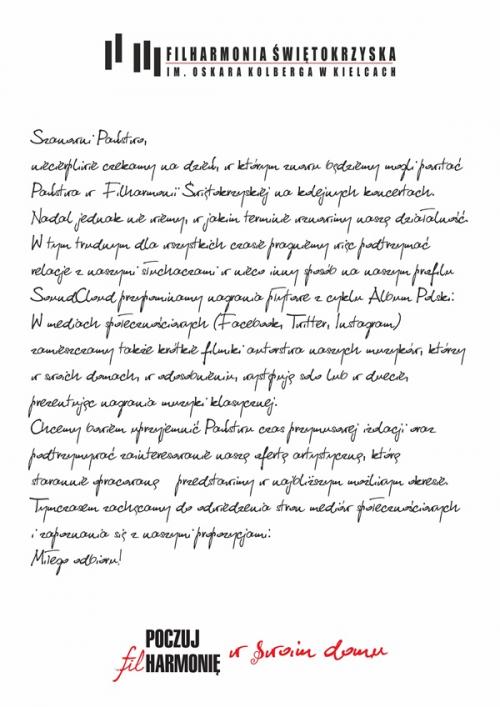 FILHARMONIA ŚWIĘTOKRZYSKA
IM. OSKARA KOLBERGA W KIELCACH
Szanowni Państwo,
niecierpliwie czekamy na dzień, w którym znowu będziemy mogli powitać
Państwa w Filharmonii Świętokrzyskiej na kolejnych koncertach.
Nadal jednak nie wiemy, w jakim terminie wznowimy naszą działalność.
W tym trudnym dla wszystkich czasie pragniemy więc podtrzymać
relacje z naszymi słuchaczami w nieco inny sposób na naszym profilu
SoundCloud przypominamy nagrania płytowe z cyklu Album Polski:
W mediach społecznościowych (Facebook, Twitter, Instagram)
zamieszczamy także krótkie filmiki autorstwa naszych muzyków, którzy
w swoich domach, w odosobnieniu, występują solo lub w duecie,
prezentując nagrania muzyki klasycznej.
Chcemy bowiem uprzyjemnić Państwu czas przymusowej izolacji oraz
podtrzymywać zainteresowanie naszą ofertą artystyczną, którą
starannie opracowaną przedstawimy w najbliższym możliwym okresie.
Tymczasem zachęcamy do odwiedzenia stron mediów społecznościowych
i zapoznania się z naszymi propozycjami:
Miłego odbioru!
POCZUJ
filHARMONIĘ w swoim domu